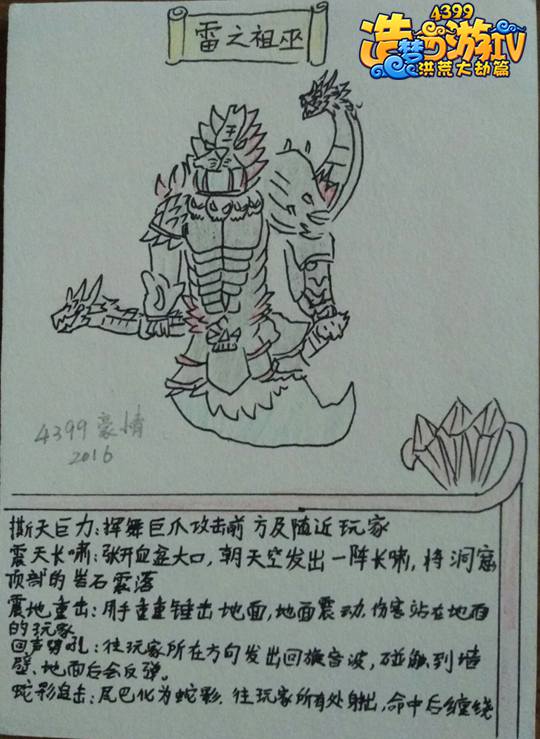 雷之祖巫
4399
造梦西游IV
洪荒大劫篇
4399豪情
2016
撕天巨力：挥舞巨爪攻击前方及随近玩家
震天长啸：张开血盆大口，朝天空发出一阵长啸，将洞窟
顶部的岩石震落
震地重击：用手重重锤击地面，地面震动，伤害站在地面
的玩家
回声劈吼：往玩家所在方向发出回旋音波，碰触到墙
壁、地面后会反弹。
蛇影追击：尾巴化为蛇影，往玩家所有处射出，命中后缠绕